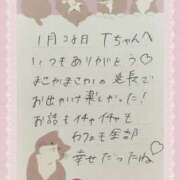 1月28日 Tちゃんへ
いつもありがとう♡
まさかまさかの延長で
お出かけ楽しかった!
お話もイチャイチャも
カフェも全部
幸せだったね♡